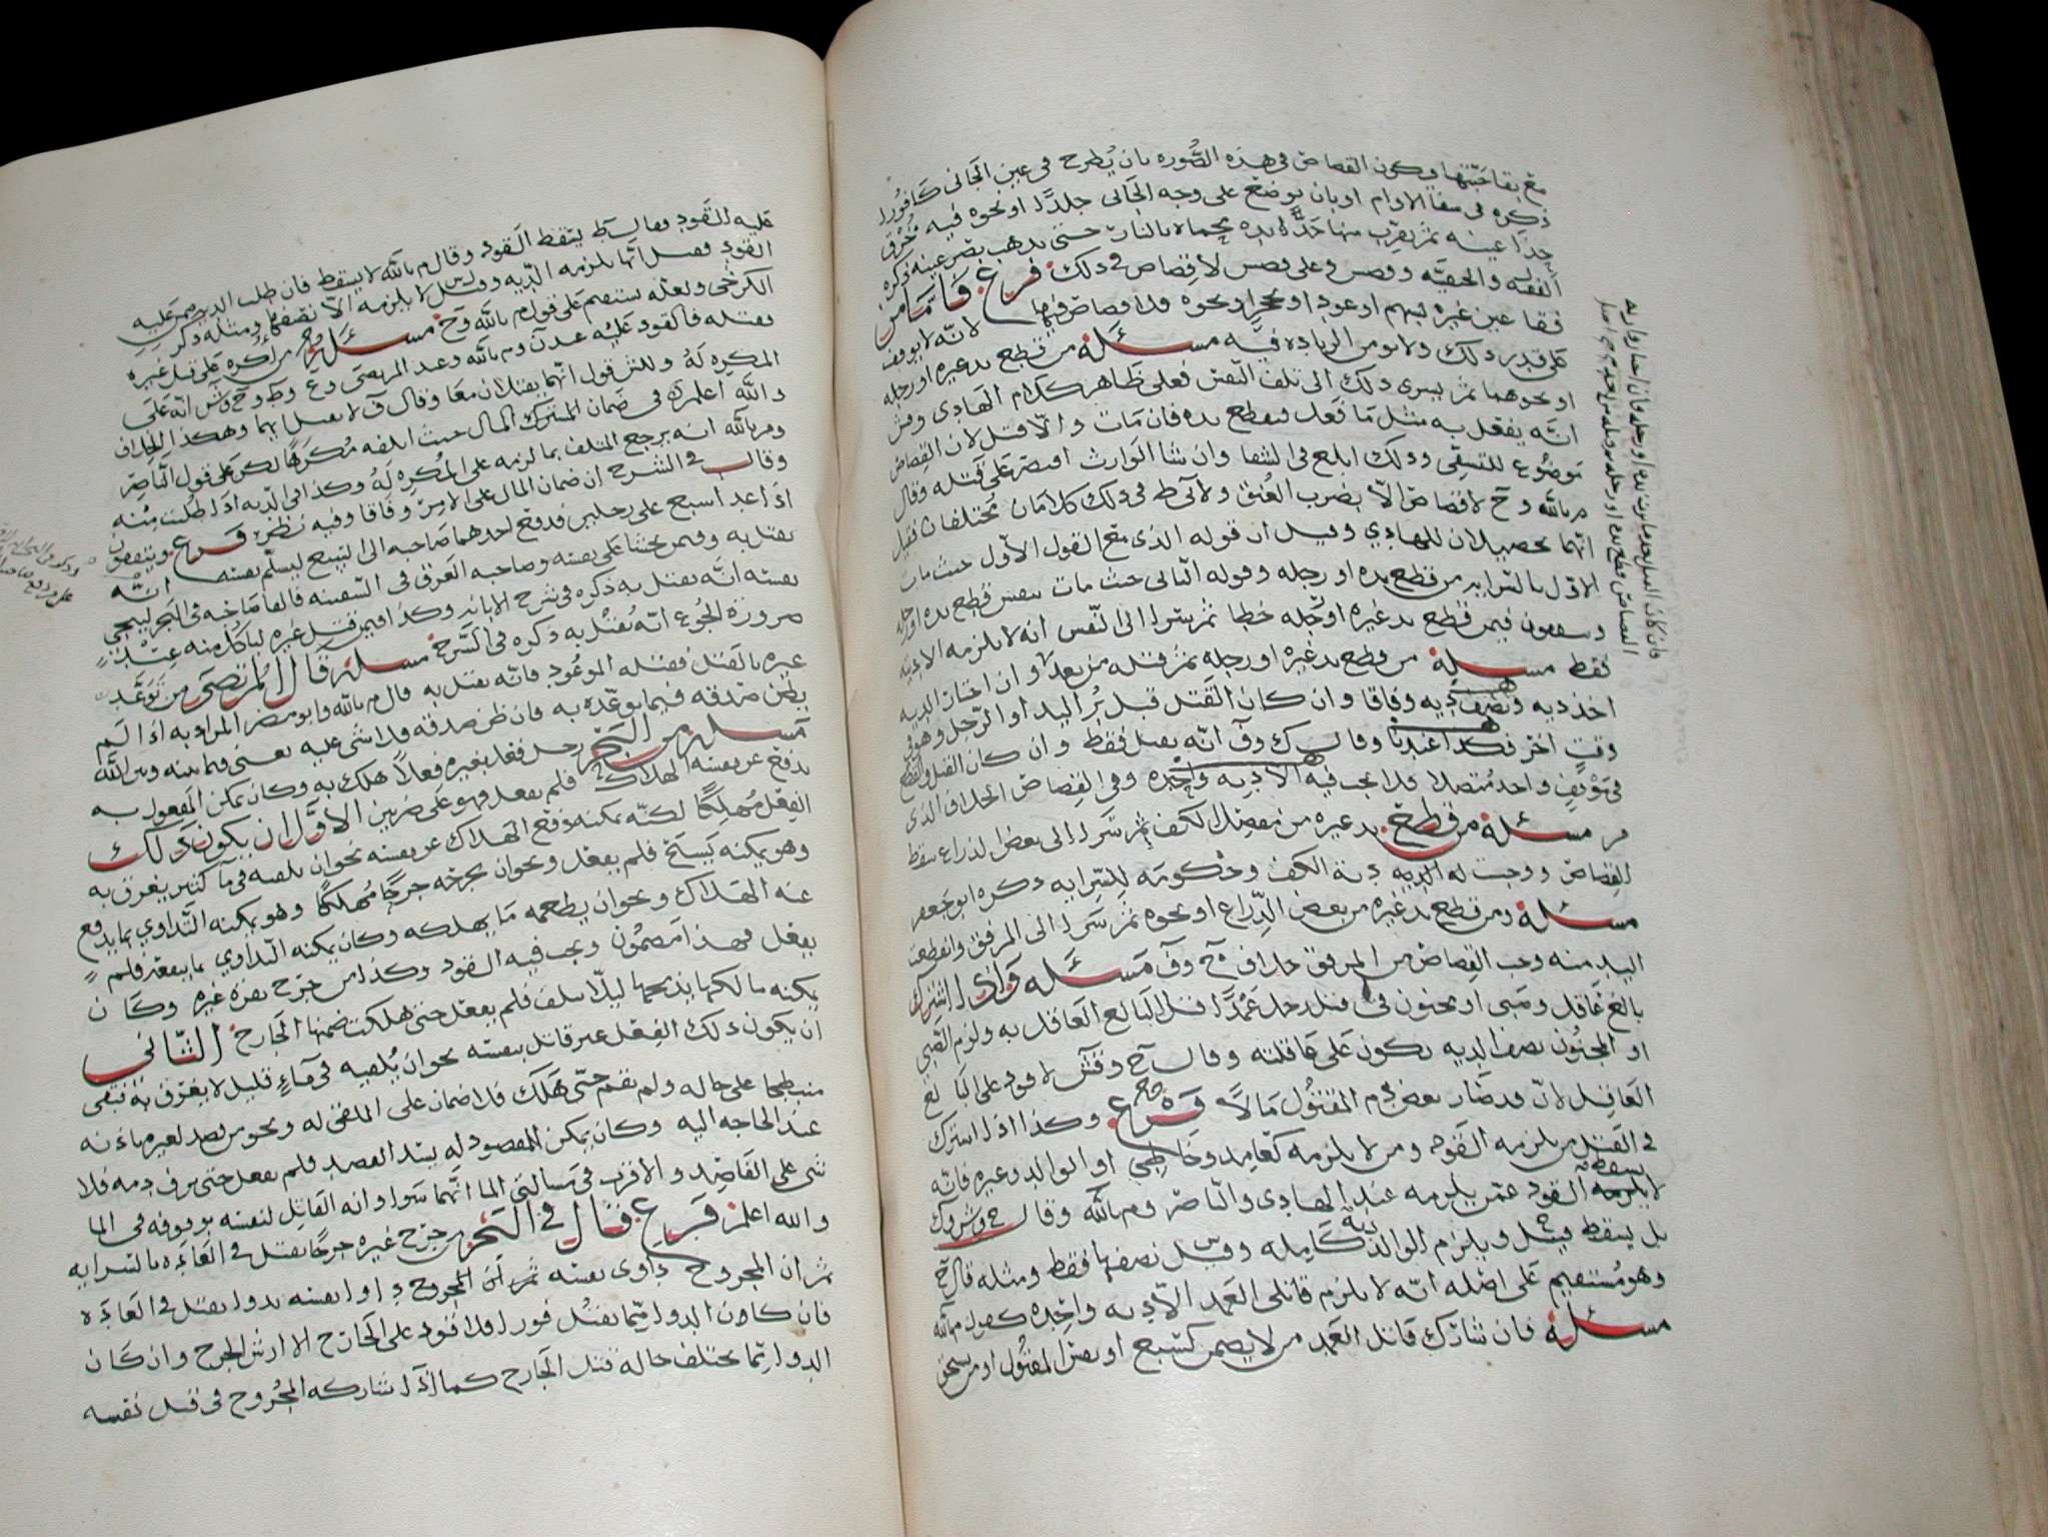 مع بقا حبّتها وكون القصاص فى هذه الصُّوره بان يُطرح فى عين الجانى كافورا
ذكره فى سفا الاوام او بان يوضع على وجه الجانى جلدًا او نحوه فيه خُرْق
حذا عينه ثم يقرب منها حديده محماه بالنار حتى يذهب بصر عينه ذكره
الفقيه ل والحنفيّه وعلى لا قصاص فى ذلك فرع فامّا من
فقا عين غيره بسهم او عود او حجر او نحوه فلا قصاص فيها لانّه لا يوقف
على قدر ذلك ولا يومن الزياده فيه مسئلة من قطع يد غيره او رجله
او نحوهما ثم يسرى ذلك الى تلف النفس فعلى ظاهر كلام الهادى وش
انّه يفعل به مثل ما فعل فيقطع يده فان مات والّا قتل لان القصاص
موضوع للتشفى وذلك ابلغ فى الشفا وان شا الوارث اقتصر على قتله وقال
م بالله وح لا قصاص الّا بضرب العُنق ولابى ط فى ذلك كلامان مختلفان فقيل
انّهما تحصيلان للهادي وقيل ان قوله الذى مع القول الاوّل حيث مات
الاوّل بالسرايه من قطع يده او رجله وقوله الثانى حيث مات بنفس قطع يده او رجله
ويتفقون فيمن قطع يد غيره او رجله خطا ثم سرا الى النّفس انه لا يلزمه الا ديه
فقط مسئلة من قطع يد غيره او رجله ثم قتله من بعد وان اختار الديه
اخذ ديه ونصف ديه وفاقا وان كان القتل قبل بُر اليد او الرّجل وهو فى
وقت اخر فكذا عندنا وقال ك وف انّه يقتل فقط وان كان القتل والقطع
فى موقف واحد متصلا فلا يجب فيه الّا ديه واحده وفى القصاص الخلاف الذى
مر مسئلة من قطع يد غيره من مفصل الكف ثم سرا الى بعض الذراع سقط
القصاص ووجبت له الديه دية الكف وحكومة للسّرايه ذكره ابو جعفر
مسئلة ومن قطع يد غيره من بعض الذّراع او نحوه ثم سرا الى المرفق وانقطعت
اليد منه وجب القصاص من المرفق خلاف ح وف مسئلة واذا اشترك
بالغ عاقل وصبى او مجنون فى قتل رجل عمدًا قتل البالغ العاقل به ولزم الصّبي
او المجنون نصف الديه تكون على عاقلته وقال ح وش لا قود على البالغ
العاقل لانّ قد صار بعض دم المقتول مالًا فرع وكذا اذا اشترك
فى القتل من يلزمه القود ومن لا يلزمه كعامد وخاطى او الوالد وغيره فانّه
لا يسقط القود عمّن يلزمه عند الهادى والنّاصر وم بالله وقال ح وش وك
بل يسقط ويلزم الوالد ديه كاملة وقيل نصفها فقط ومثله قال ح
وهو مستقيم على اصله انّه لا يلزم قاتلى العمد الّا ديه واحده كقول م بالله
مسئلة فان شارك قاتل العمد من لا يضمن كسَبُع او نفس المقتول او من يستحق
عليه القود فقال ط يسقط القود وقال م بالله لا يسقط فان طلب الديه
القود وقيل انّها يلزمه الدّيه وقيل لا يلزمه الّا نصفها ومثله ذكر
الكرخى ولعلّه يستقيم على قول م بالله وح مسئلة من اكره على قتل غيره
بقتله فالقود عليه عند ن وم بالله وعند المرتضى وع وط وح وش انّه على
المكرِه لهُ وللش قول انّهما يقتلان معًا وقال ف لا يقتل ايهما وهكذا الخلاف
والله اعلم فى ضمان المال حيث اتلفه مُكرهًا لكن على قول النّاصر
وم بالله انه يرجع المتلف بما لزمه على المُكرِه لهُ وكذا فى الديه اذا طُلبت مِنه
وقال فى الشرح ان ضمان المال على الامر وفاقا وفيه نظر فرع ويتفقون
اذا عدا السبع على رجلين فدفع احدهما صاحبه الى السّبع ليسلم بنفسه انّه
يقتل به وفيمن خشيا على نفسه وصاحبه الغرق فى السّفينه فالقا صاحبه فى البحر لينجي
نفسه انّه يقتل به ذكره فى شرح الابانه وكذا فيمن قتل غيره لياكل منه عند
ضرورة الجُوع انّه يُقتل به ذكره فى الشرح مسئلة قال المرتضى من توعّد
غيره بالقتل فقتله الموعود فانّه يقتل به قال م بالله وابو مضر المراد به اذا لم
يظن صدقه فيما يوعّده به فان ظن صدقه فلا شى عليه يعنى فيما بينه وبين الله
مسئلة من البحر رجل فعل بغيره فعلًا هلك به وكان يمكن المفعول به
يدفع عن نفسه الهلاك فلم يفعل فهو على ضربين الاوّل ان يكون ذلك
الفِعل مُهلكًا لكنّه يمكنه دفع الهلاك عن نفسه نحو ان يلقيه فى ما كثير يغرق به
وهو يمكنه يَسبَح فلم يفعل ونحو ان يجرحه جرحًا مُهلكًا وهو يمكنه التّداوي بما يدفع
عنه الهلاك ونحو ان يطعمه ما يهلكه وكان يمكنه التداوي بما ينفعه فلم
يفعل فهذا مضمون ويجب فيه القود وكذا من جرح بقرة غيره وكان
يمكنه مالكها يذبحها ليلّا يتلف فلم يفعل حتى هلكت ضمنها الجارح الثّانى
ان يكون ذلك الفعل غير قاتل بنفسه نحو ان يُلقيه فى ماءٍ قليل لا يغرق به فبقى
منبطحا على حاله ولم يقم حتّى هَلك فلا ضمان على الملقى له ونحو من فصد لغيره باذنه
عند الحاجه اليه وكان يمكن المفصود له يشد الفصد فلم يفعل حتى نزف دمه فلا
شى على الفاصد والاقرب فى مسالتى الما انّهما سوا وانه القاتل لنفسه بوقوفه فى الما
والله اعلم فرع قال فى البحر من جرح غيره جرحًا يقتل فى العاده بالسرايه
ثم ان المجروح داوى نفسه ثم ان المجروح داوا نفسه بدوا يقتل فى العاده
فان كان الدوا مِمّا يقتل فورا فلا قود على الجارح الا ارش الجرح وان كان
الدوا مِمّا يختلف حاله قتل الجارح كما اذا شاركه المجروح فى قتل نفسه